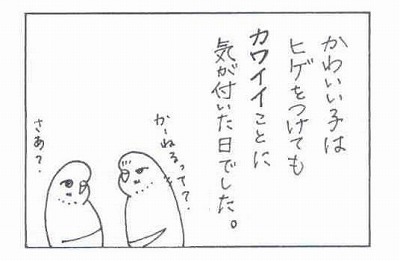 かわいい子は
ヒゲをつけても
カワイイことに
気が付いた日でした。
かーねるって？
さあ？